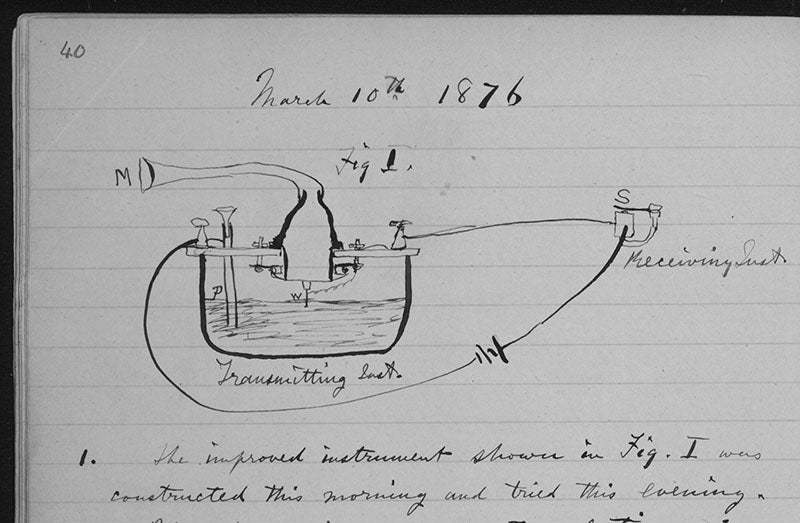 40
March 10th 1876
Fig I.
M
S
Receiving Inst.
P
W
Transmitting Inst.
1. The improved instrument shown in Fig. I was
constructed this morning and tried this evening.